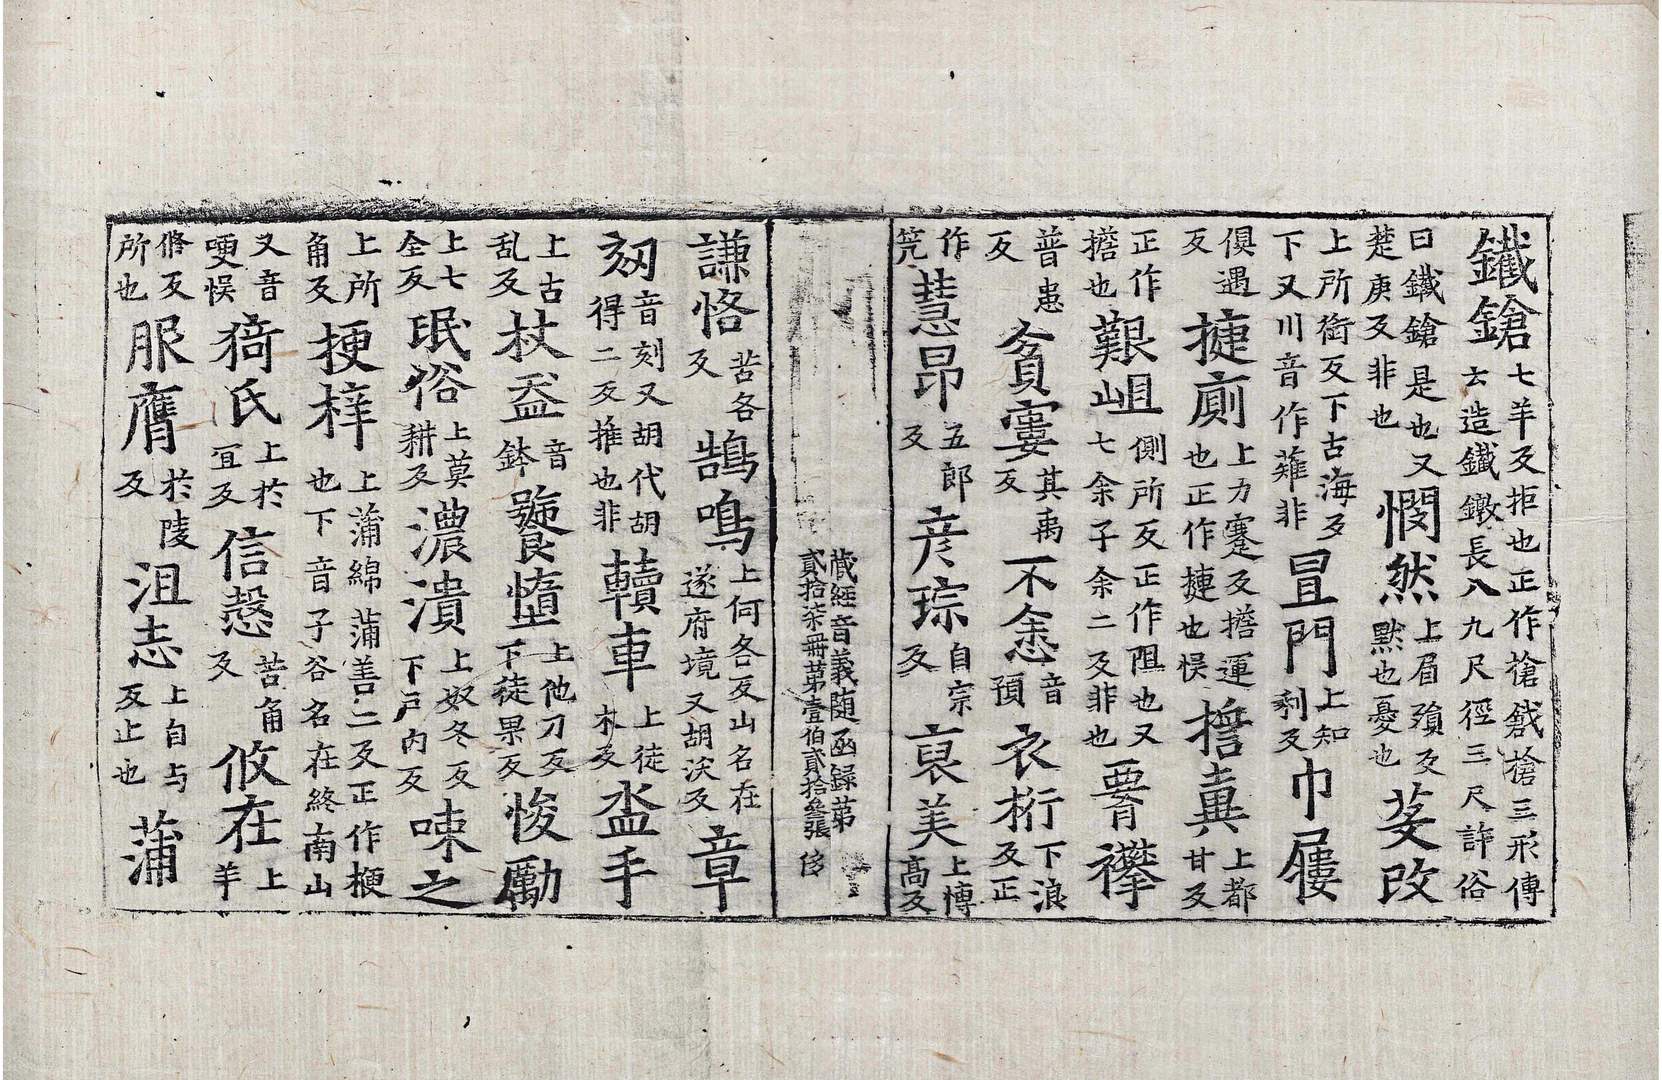 鐵鎗七羊反拒也正作槍戧槍三形傳云造鐵鐓長八九尺徑三尺許俗
曰鐵鎗是也又楚庚反非也憫然上眉殞反默也憂也芟改
上所銜反下古海反下又川音作薙非冒門上知剩反巾屨
俱遇反揵廁上力蹇反擔運也正作摙也悮擔糞上都甘反
正作擔也艱岨側所反正作阻也又七余子余二反非也胥襻
普患反貧寠其禹反不悆音預衣桁下浪反正
作笐慧昂五郎反彦琮自宗反裒美上博高反
藏經音義随函録第
貳拾柒冊第壹伯貳拾叄張 侈
謙恪苦各反鵠鳴上何各反山名在遂府境又胡沃反章
刻音刻又胡代胡得二反推也非犢車上徒木反盃手
上古乱反杖盔音鉢饕惰上他刀反下徒果反悛勵
上七全反氓俗上莫耕反濃潰上奴冬反下户内反㖨之
上所角反梗梓上蒲綿蒲善二反正作楩也下音子谷名在終南山
又音哽悮猗氏上於宜反信愨苦角反攸在上羊
脩反所也服膺於陵反沮志上自与反止也蒲